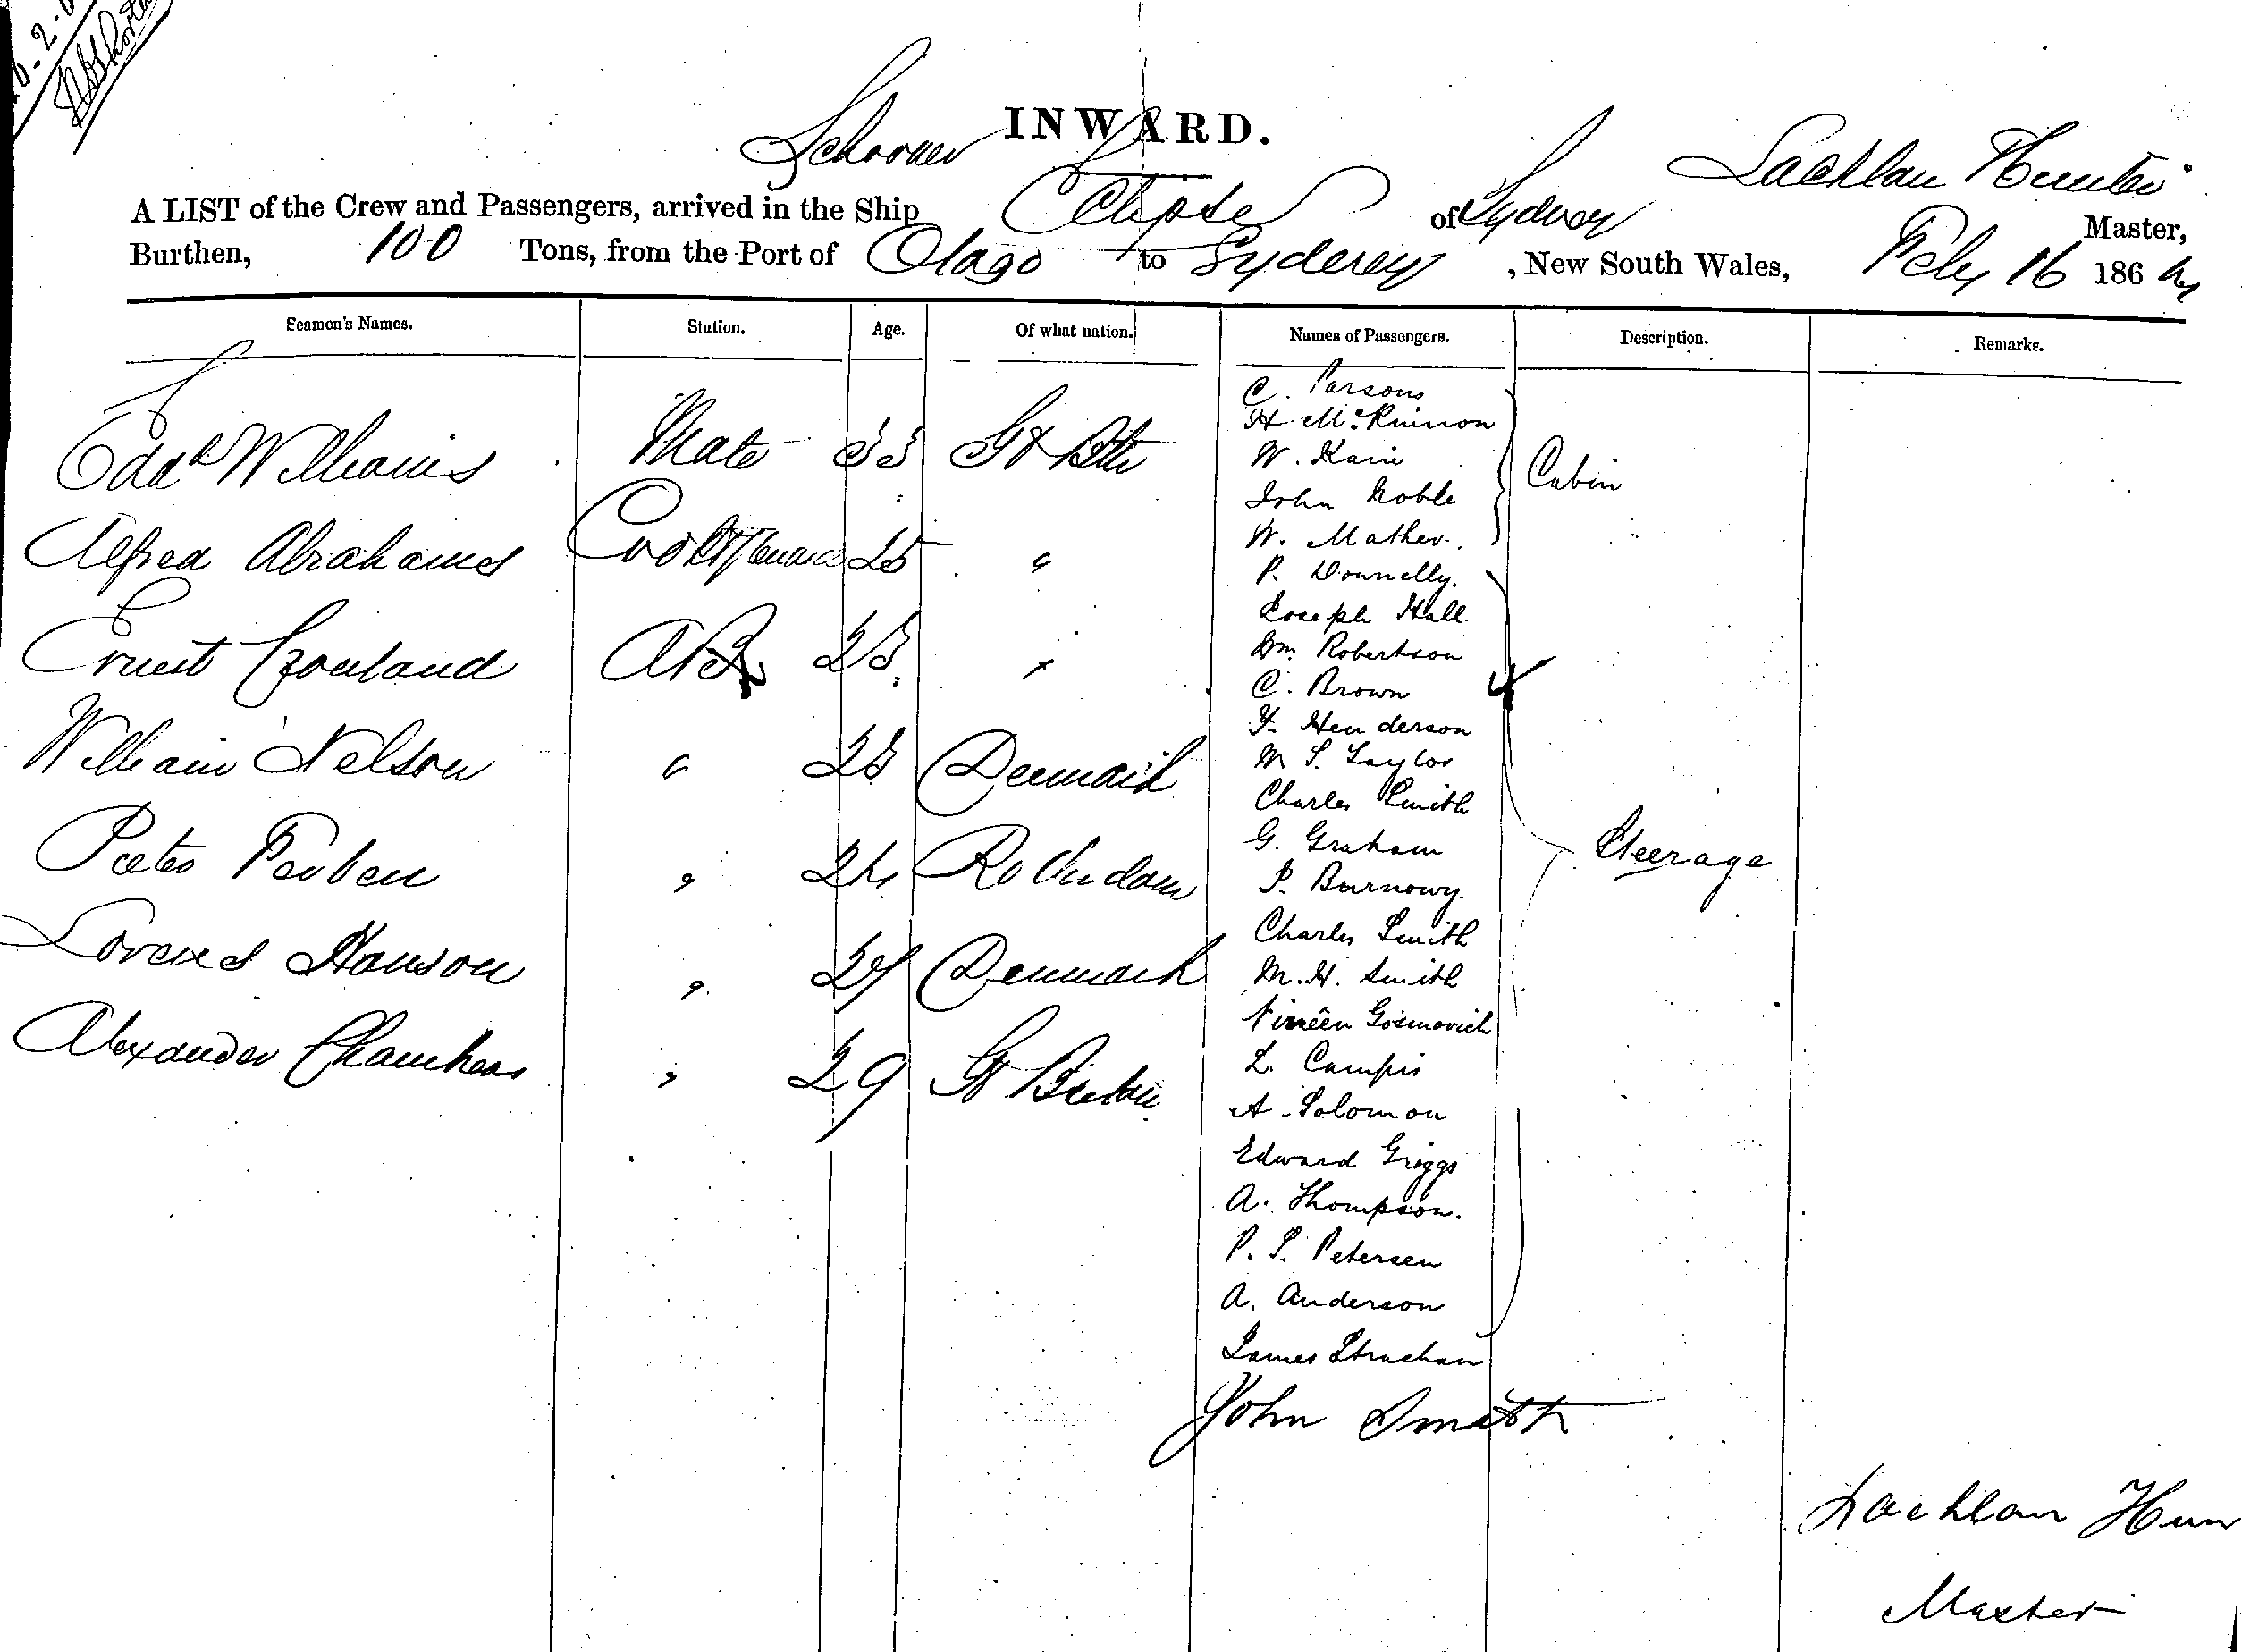 INWARD.
Schooner
A LIST of the Crew and Passengers, arrived in the Ship Eclipse of Sydney Lachlan Hunter Master,
Burthen, 100 Tons, from the Port of Otago to Sydney, New South Wales, Feby 16 186
Seamen's Names. Station. Age. Of what nation. Names of Passengers. Description. Remarks.
Edwd Williams Mate 33 Gt
Alfred Abrahams Cook & Steward 25 "
Ernest AB 25 "
William Nelson " 25 Denmark
Peter " 24 Rotterdam
Hanson " 27 Denmark
Alexander Chambers " 29 Gt Britn
C. Parsons
H McKinnon
W. Karie
John Noble
W. Mather.
Cabin
P. Donnelly.
Joseph Hall.
Wm. Robertson
C. Brown
F. Henderson
M S. Taylor
Charles Smith
G. Graham
P. Burnowy.
Charles Smith
M. H. Smith
L. Campis
A Solomon
Edward Griggs
A. Thompson.
P. S. Petersen
A. Anderson
James Strachan
Steerage
John Smith
Lachlan Hun
Master